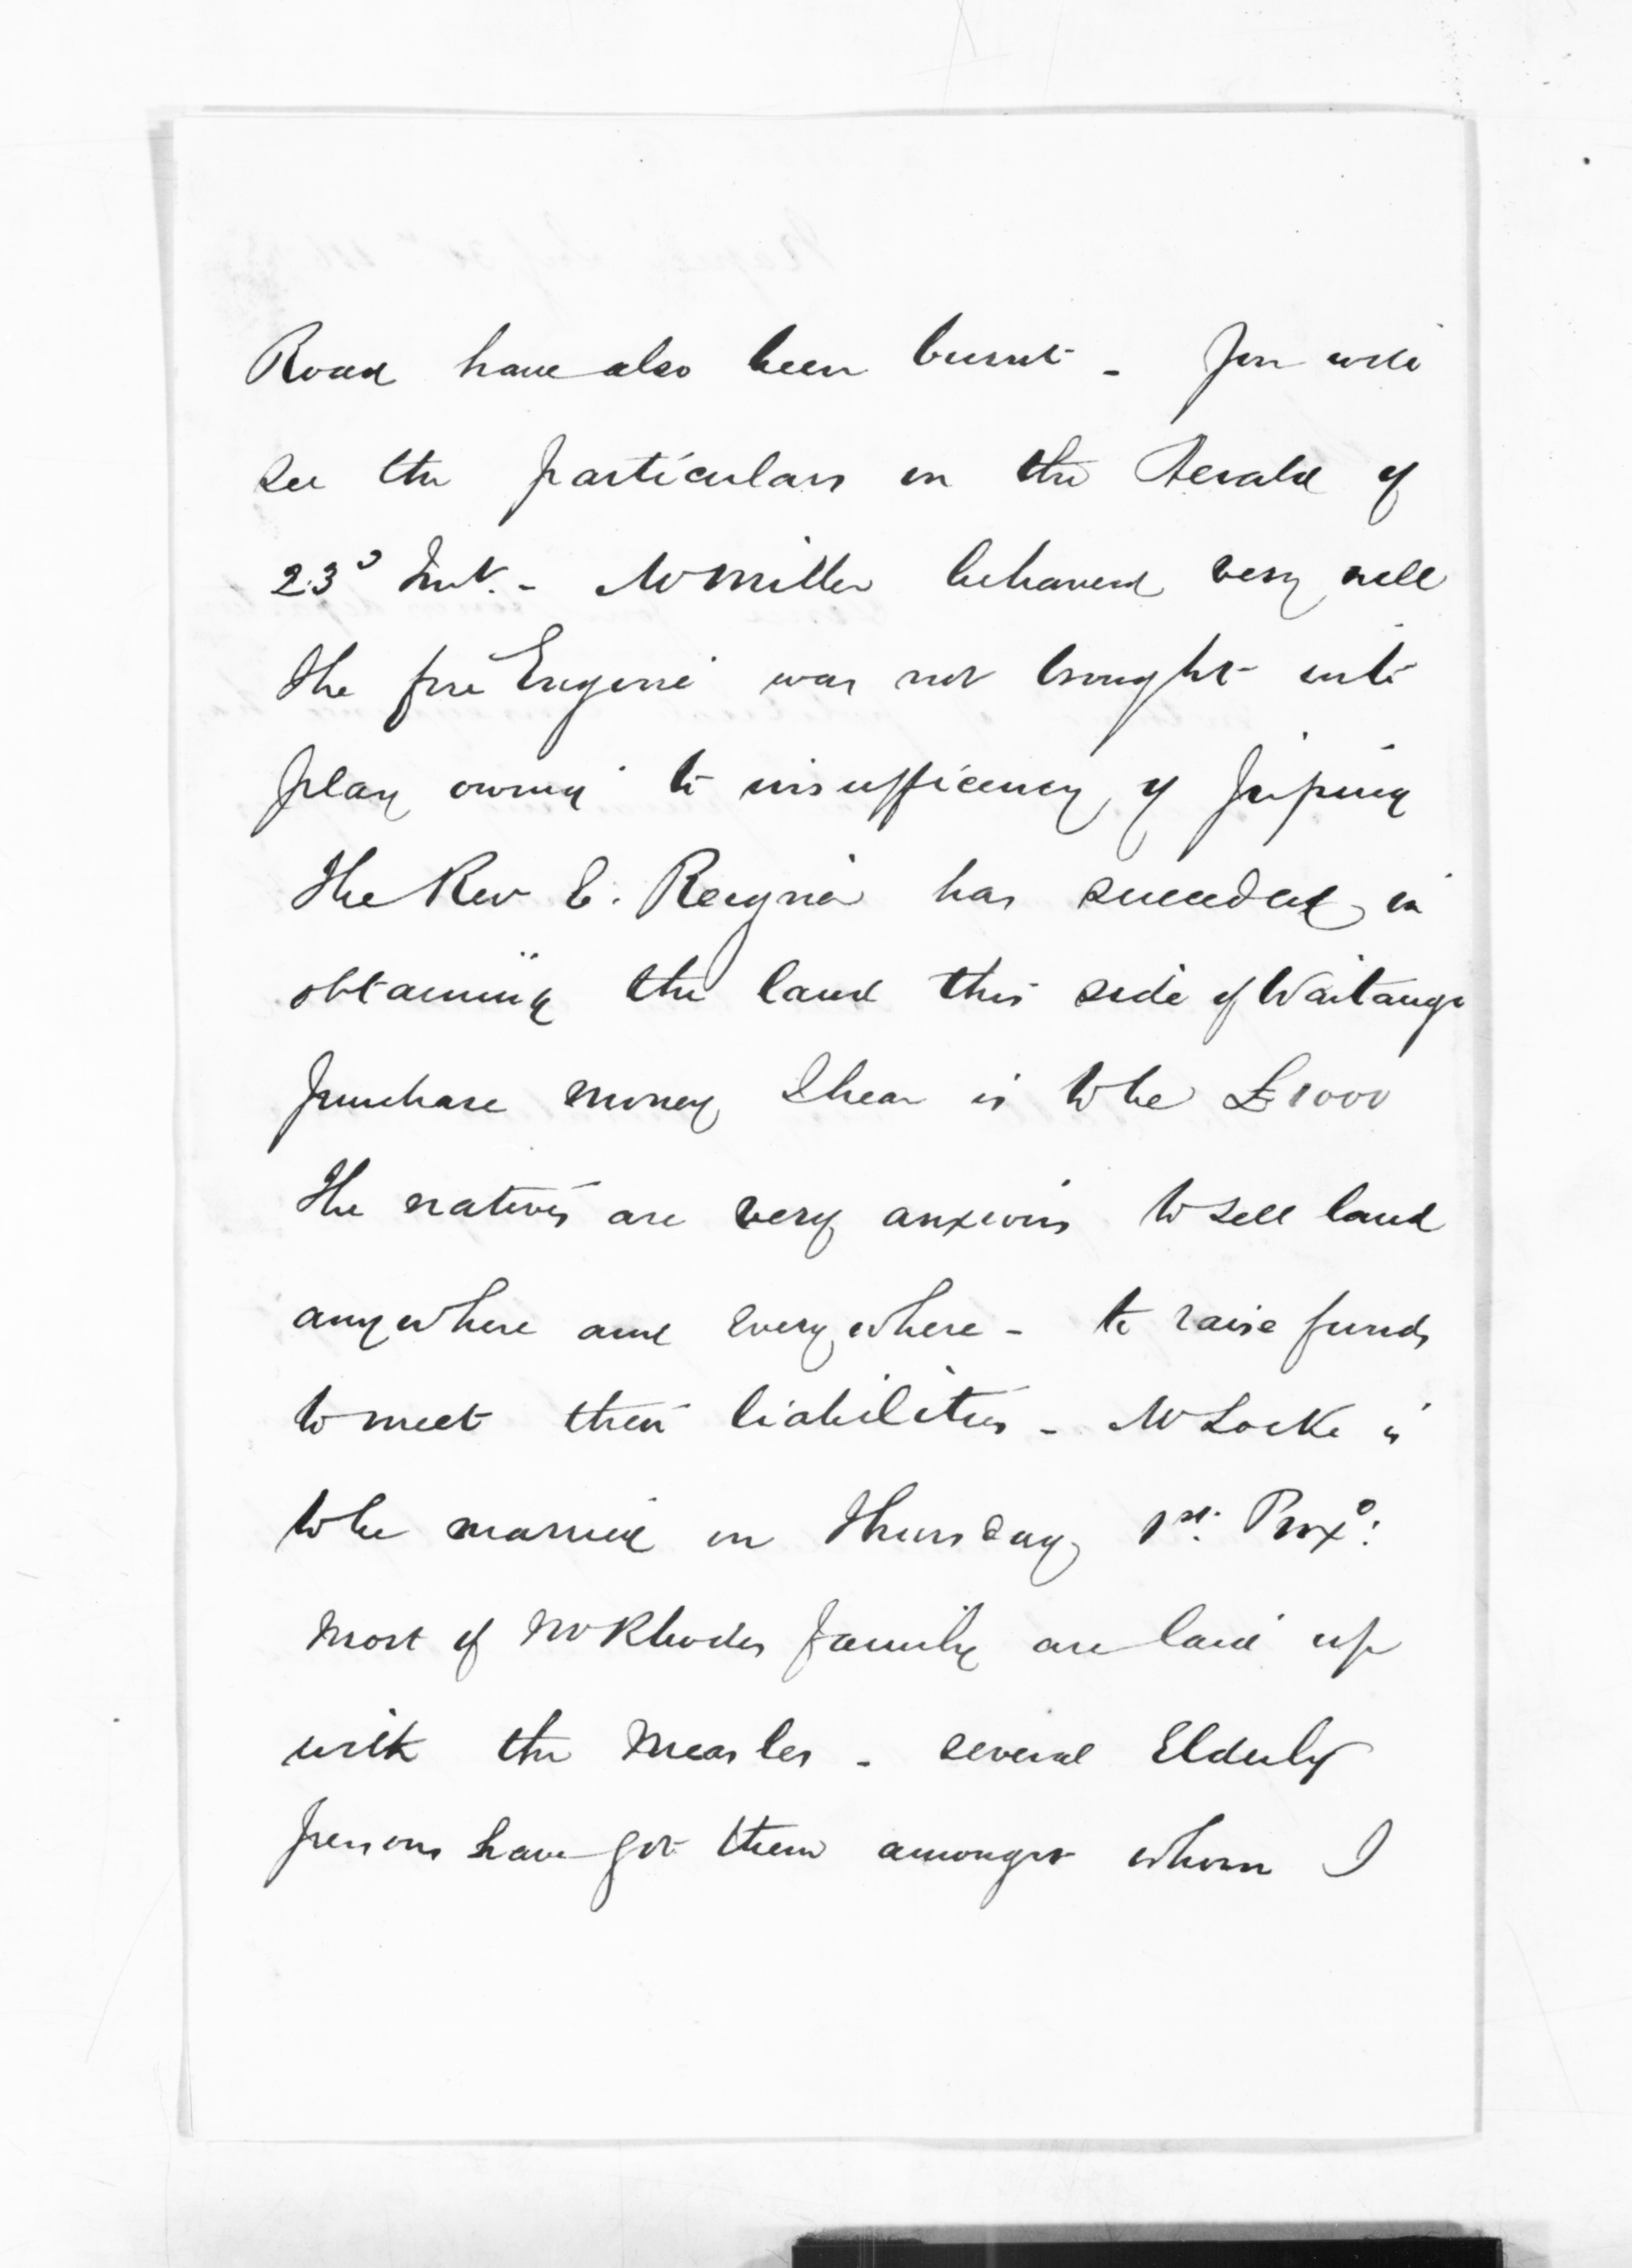 Road have also been burnt - You will
see the particulars in the Herald of
23d Inst. - Mr Miller behaved very well
The fire Engine was not brought into
play owing to insufficiency of piping
The Rev E. Reignier has succeeded in
obtaining the land this side of Waitangi
Purchase money I hear is to be £1000
The natives are very anxious to sell land
anywhere and everywhere - to raise funds
to meet their liabilities - Mr Locke is
to be married on Thursday 1st. Proxo:
Most of Mr Rhodes family are laid up
with the Measles - several Elderly
persons have got them amongst whom I